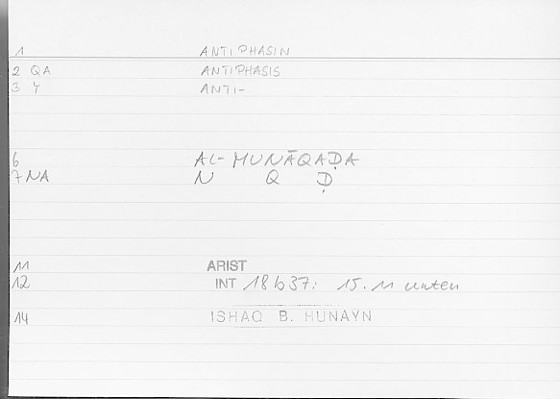 1 ANTIPHASIN
2 QA ANTIPHASIS
3 Y ANTI-
6 AL-MUNĀQAḌA
7 NA N Q Ḍ
11 ARIST
12 INT 18b37: 15.11 unten
14 ISHAQ B. HUNAYN